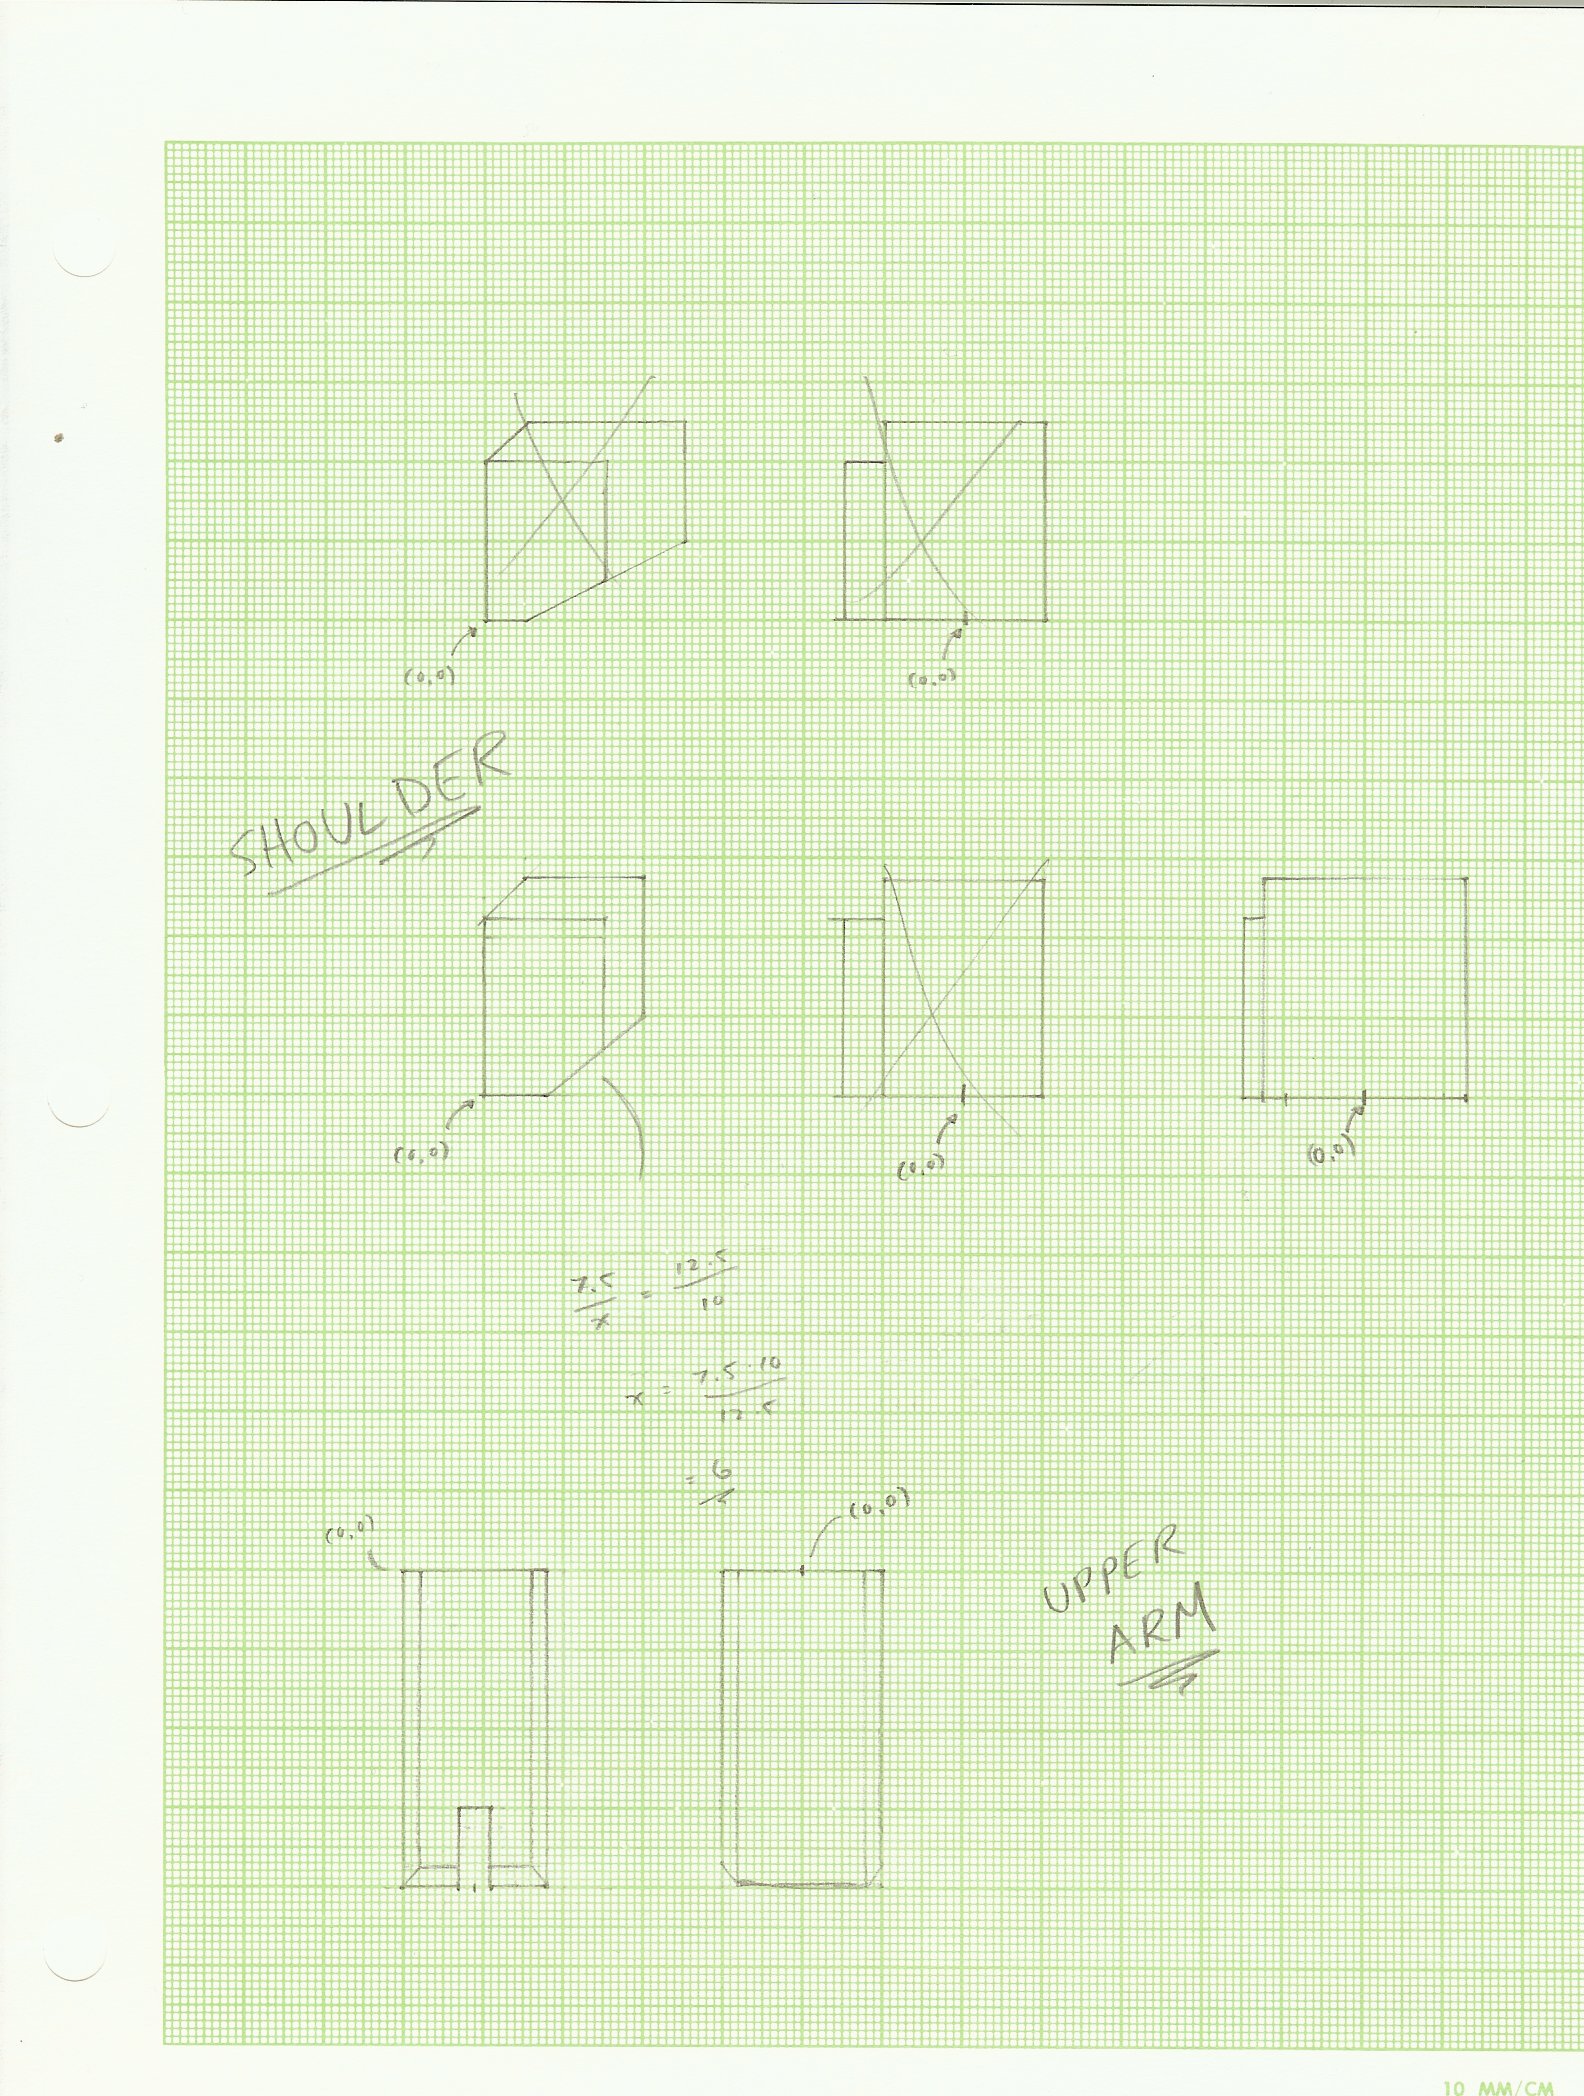 (0,0) (0,0)
SHOULDER
(0,0) (0,0) (0,0)
7.5/x = 12.5/10
x = 7.5·10/12.5
= 6
(0,0) (0,0)
UPPER
ARM
10 MM/CM